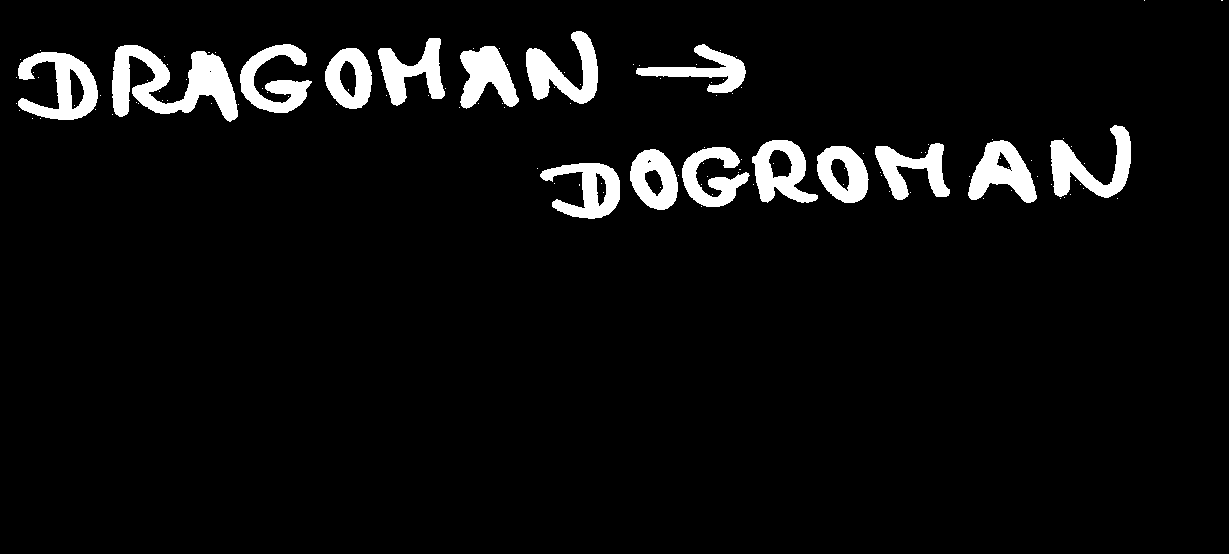 DRAGOMAN →
DOGROMAN